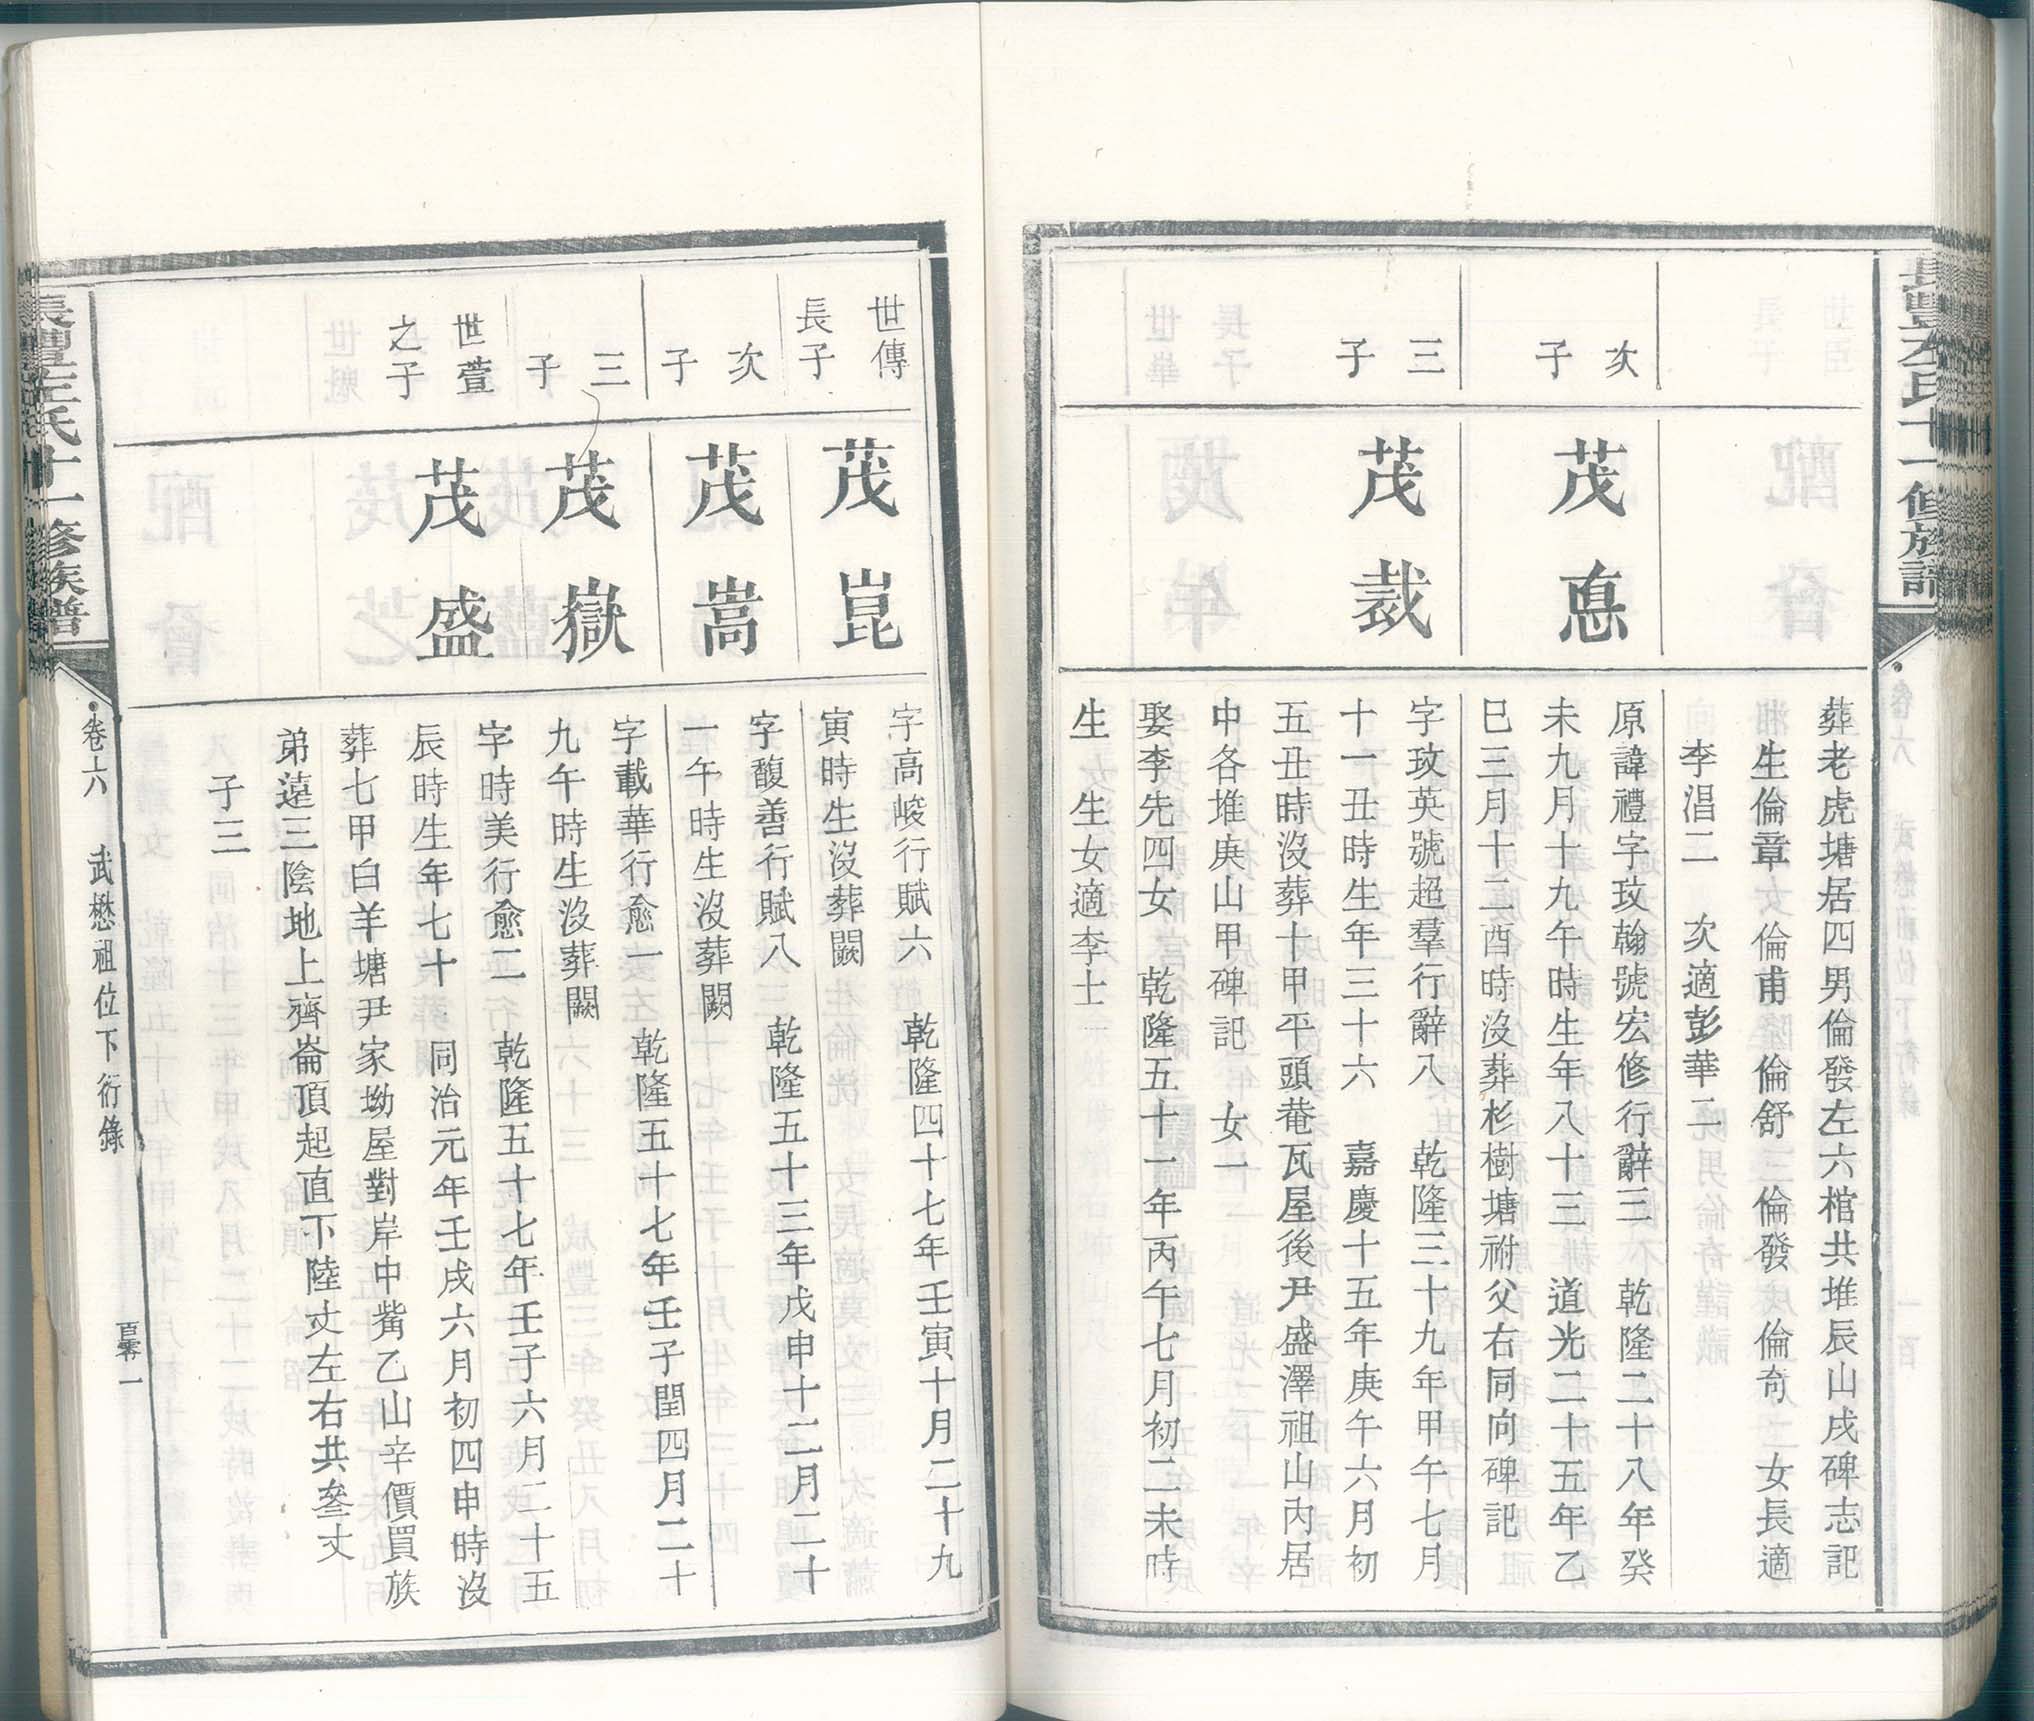 長豐左氏十一修族譜
葬老虎塘居四男倫發左六棺共堆辰山戌碑志記
生倫章 倫甫 倫舒 倫發 倫奇 女長適
李淐二 次適彭華二
次子
茂惪
原諱禮字玟翰號宏修行辭三 乾隆二十八年癸
未九月十九午時生年八十三 道光二十五年乙
巳三月十二酉時沒葬杉樹塘祔父右同向碑記
三子
茂裁
字玟英號超羣行辭八 乾隆三十九年甲午七月
十一丑時生年三十六 嘉慶十五年庚午六月初
五丑時沒葬十甲平頭菴瓦屋後尹盛澤祖山內居
中各堆庚山甲碑記 女一
娶李先四女 乾隆五十一年丙午七月初二未時
生 生女適李士
世傳長子
茂崑
字高峻行賦六 乾隆四十七年壬寅十月二十九
寅時生沒葬闕
次子
茂嵩
字馥善行賦八 乾隆五十三年戊申十二月二十
一午時生沒葬闕
三子
茂嶽
字載華行愈一 乾隆五十七年壬子閏四月二十
九午時生沒葬闕
世萱之子
茂盛
字時美行愈二 乾隆五十七年壬子六月二十五
辰時生年七十 同治元年壬戌六月初四申時沒
葬七甲白羊塘尹家坳屋對岸中觜乙山辛價買族
弟遠三陰地上齊崙頂起直下陸丈左右共叄丈
子三
長豐左氏十一修族譜
卷六 武懋祖位下衍錄
百零一